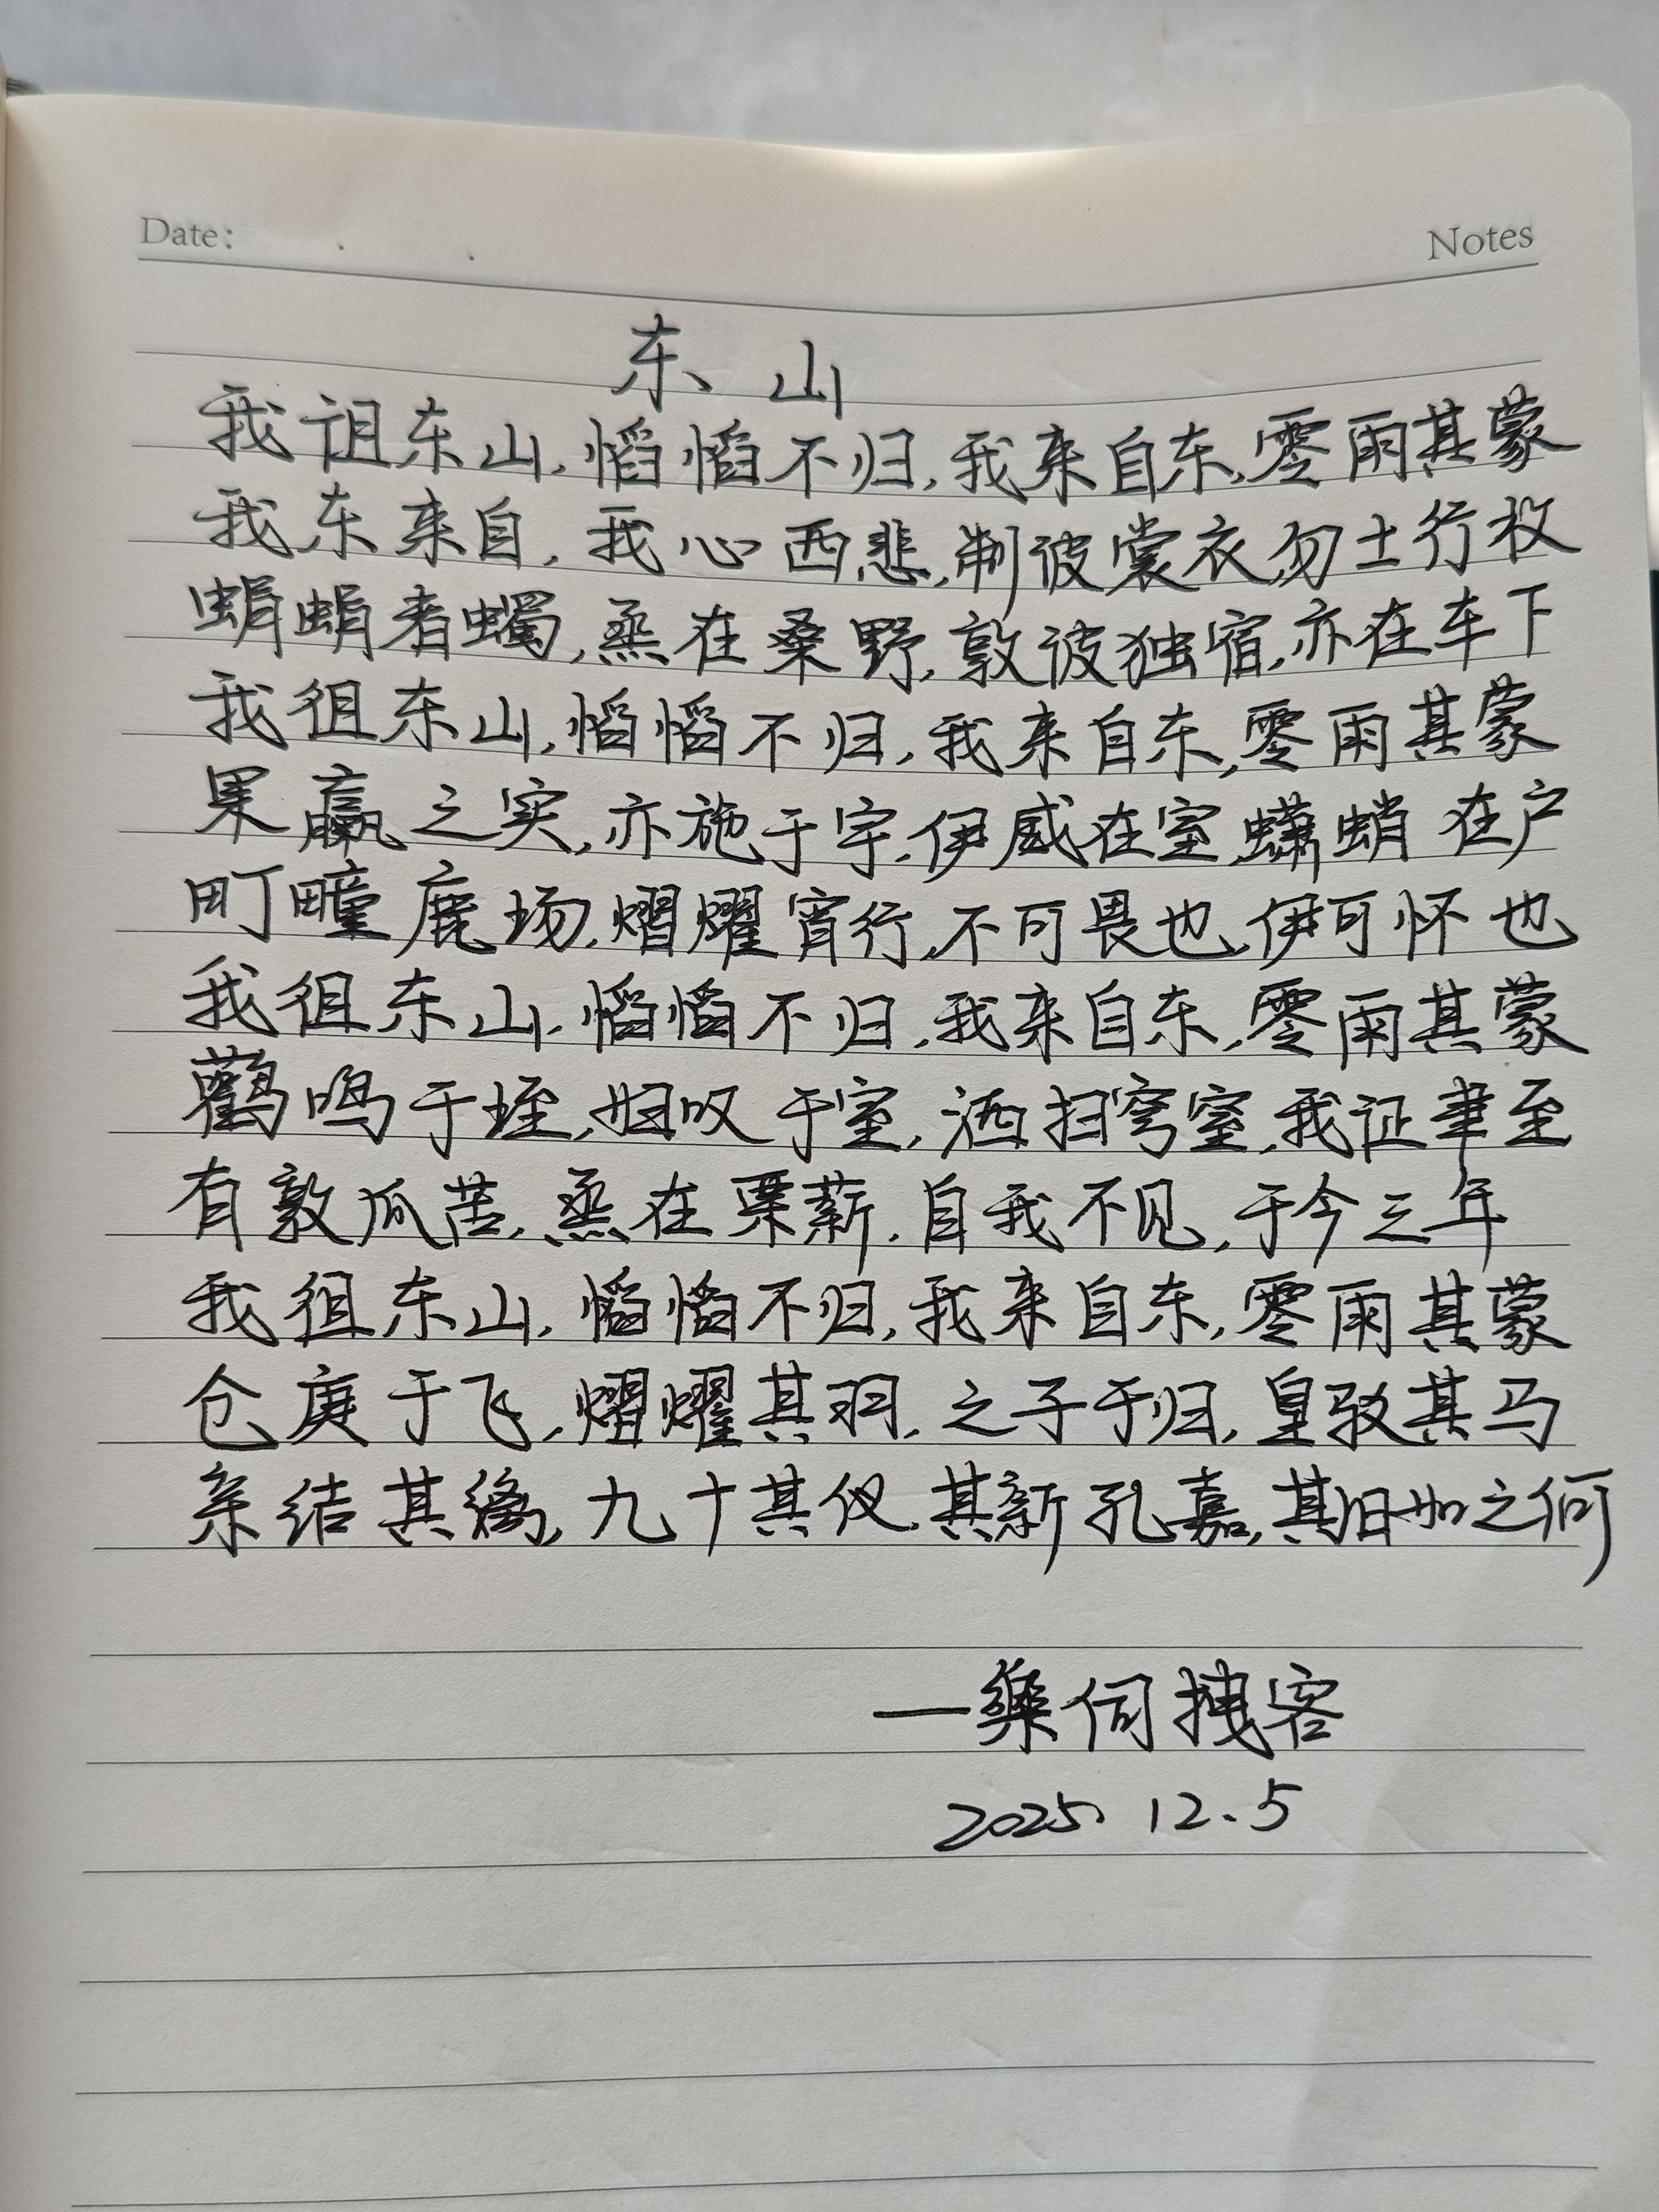 Date:
Notes
东山
我诅东山,慆慆不归,我来自东,零雨其蒙
我东来自,我心西悲,制彼裳衣,勿士行枚
蜎蜎者蠋,烝在桑野,敦彼独宿,亦在车下
我徂东山,慆慆不归,我来自东,零雨其蒙
果臝之实,亦施于宇,伊威在室,蟏蛸在户
町疃鹿场,熠耀宵行,不可畏也,伊可怀也
我徂东山,慆慆不归,我来自东,零雨其蒙
鹳鸣于垤,妇叹于室,洒扫穹窒,我征聿至
有敦瓜苦,烝在栗薪,自我不见,于今三年
我徂东山,慆慆不归,我来自东,零雨其蒙
仓庚于飞,熠耀其羽,之子于归,皇驳其马
亲结其缡,九十其仪,其新孔嘉,其旧如之何
—樂伺拽客
2025.12.5